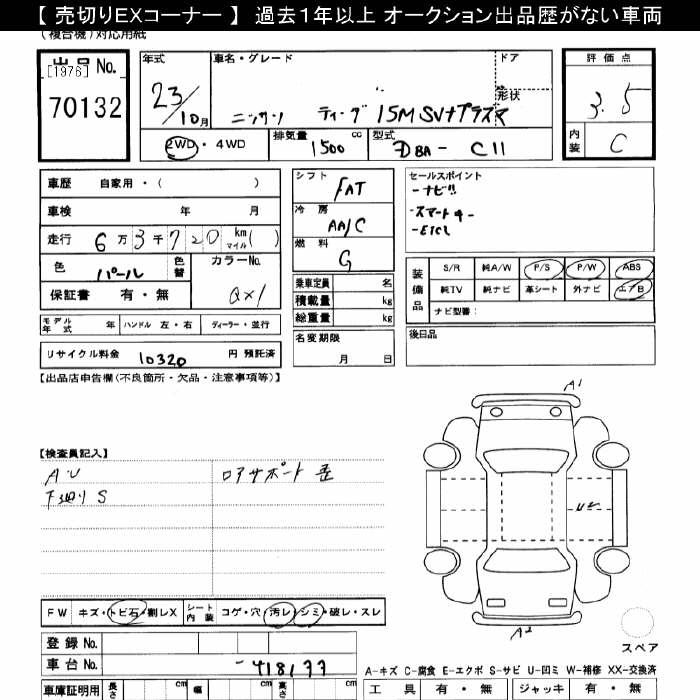 【 売切りEXコーナー 】 過去1年以上 オークション出品歴がない車両
(複合機)対応用紙
出品 No.
[1976]
70132
年式
23/10月
車名・グレード
ニッサン ティーダ 15M SV+プラズマ
ドア
形状
評価点
3.5
内装
C
2WD・4WD
排気量
1500 cc
型式
DBA - C11
車歴 自家用・( )
車検 年 月
走行 6万3千720 km マイル( )
色 パール 色替
カラーNo. QX1
保証書 有・無
モデル年式 年 ハンドル 左・右 ディーラー・並行
リサイクル料金 10320 円 預託済
シフト FAT
冷房 AA/C
燃料 G
乗車定員 名
積載量 kg
総重量 kg
名変期限
月 日
セールスポイント
-ナビ!!
-スマートキー
-ETC
装備品
S/R 純A/W P/S P/W ABS
純TV 純ナビ 革シート 外ナビ エアB
ナビ型番:
後日品
【出品店申告欄(不良箇所・欠品・注意事項等)】
【検査員記入】
A.U
下廻りS
ロアサポート歪
A1
U2
A2
スペア
FW キズ・トビ石・割レX シート内装 コゲ・穴・汚レ・シミ・破レ・スレ
登録 No.
車台 No. -418177
車庫証明用 長さ cm 幅 cm 高さ cm
A-キズ C-腐食 E-エクボ S-サビ U-凹ミ W-補修 XX-交換済
工具 有・無 ジャッキ 有・無